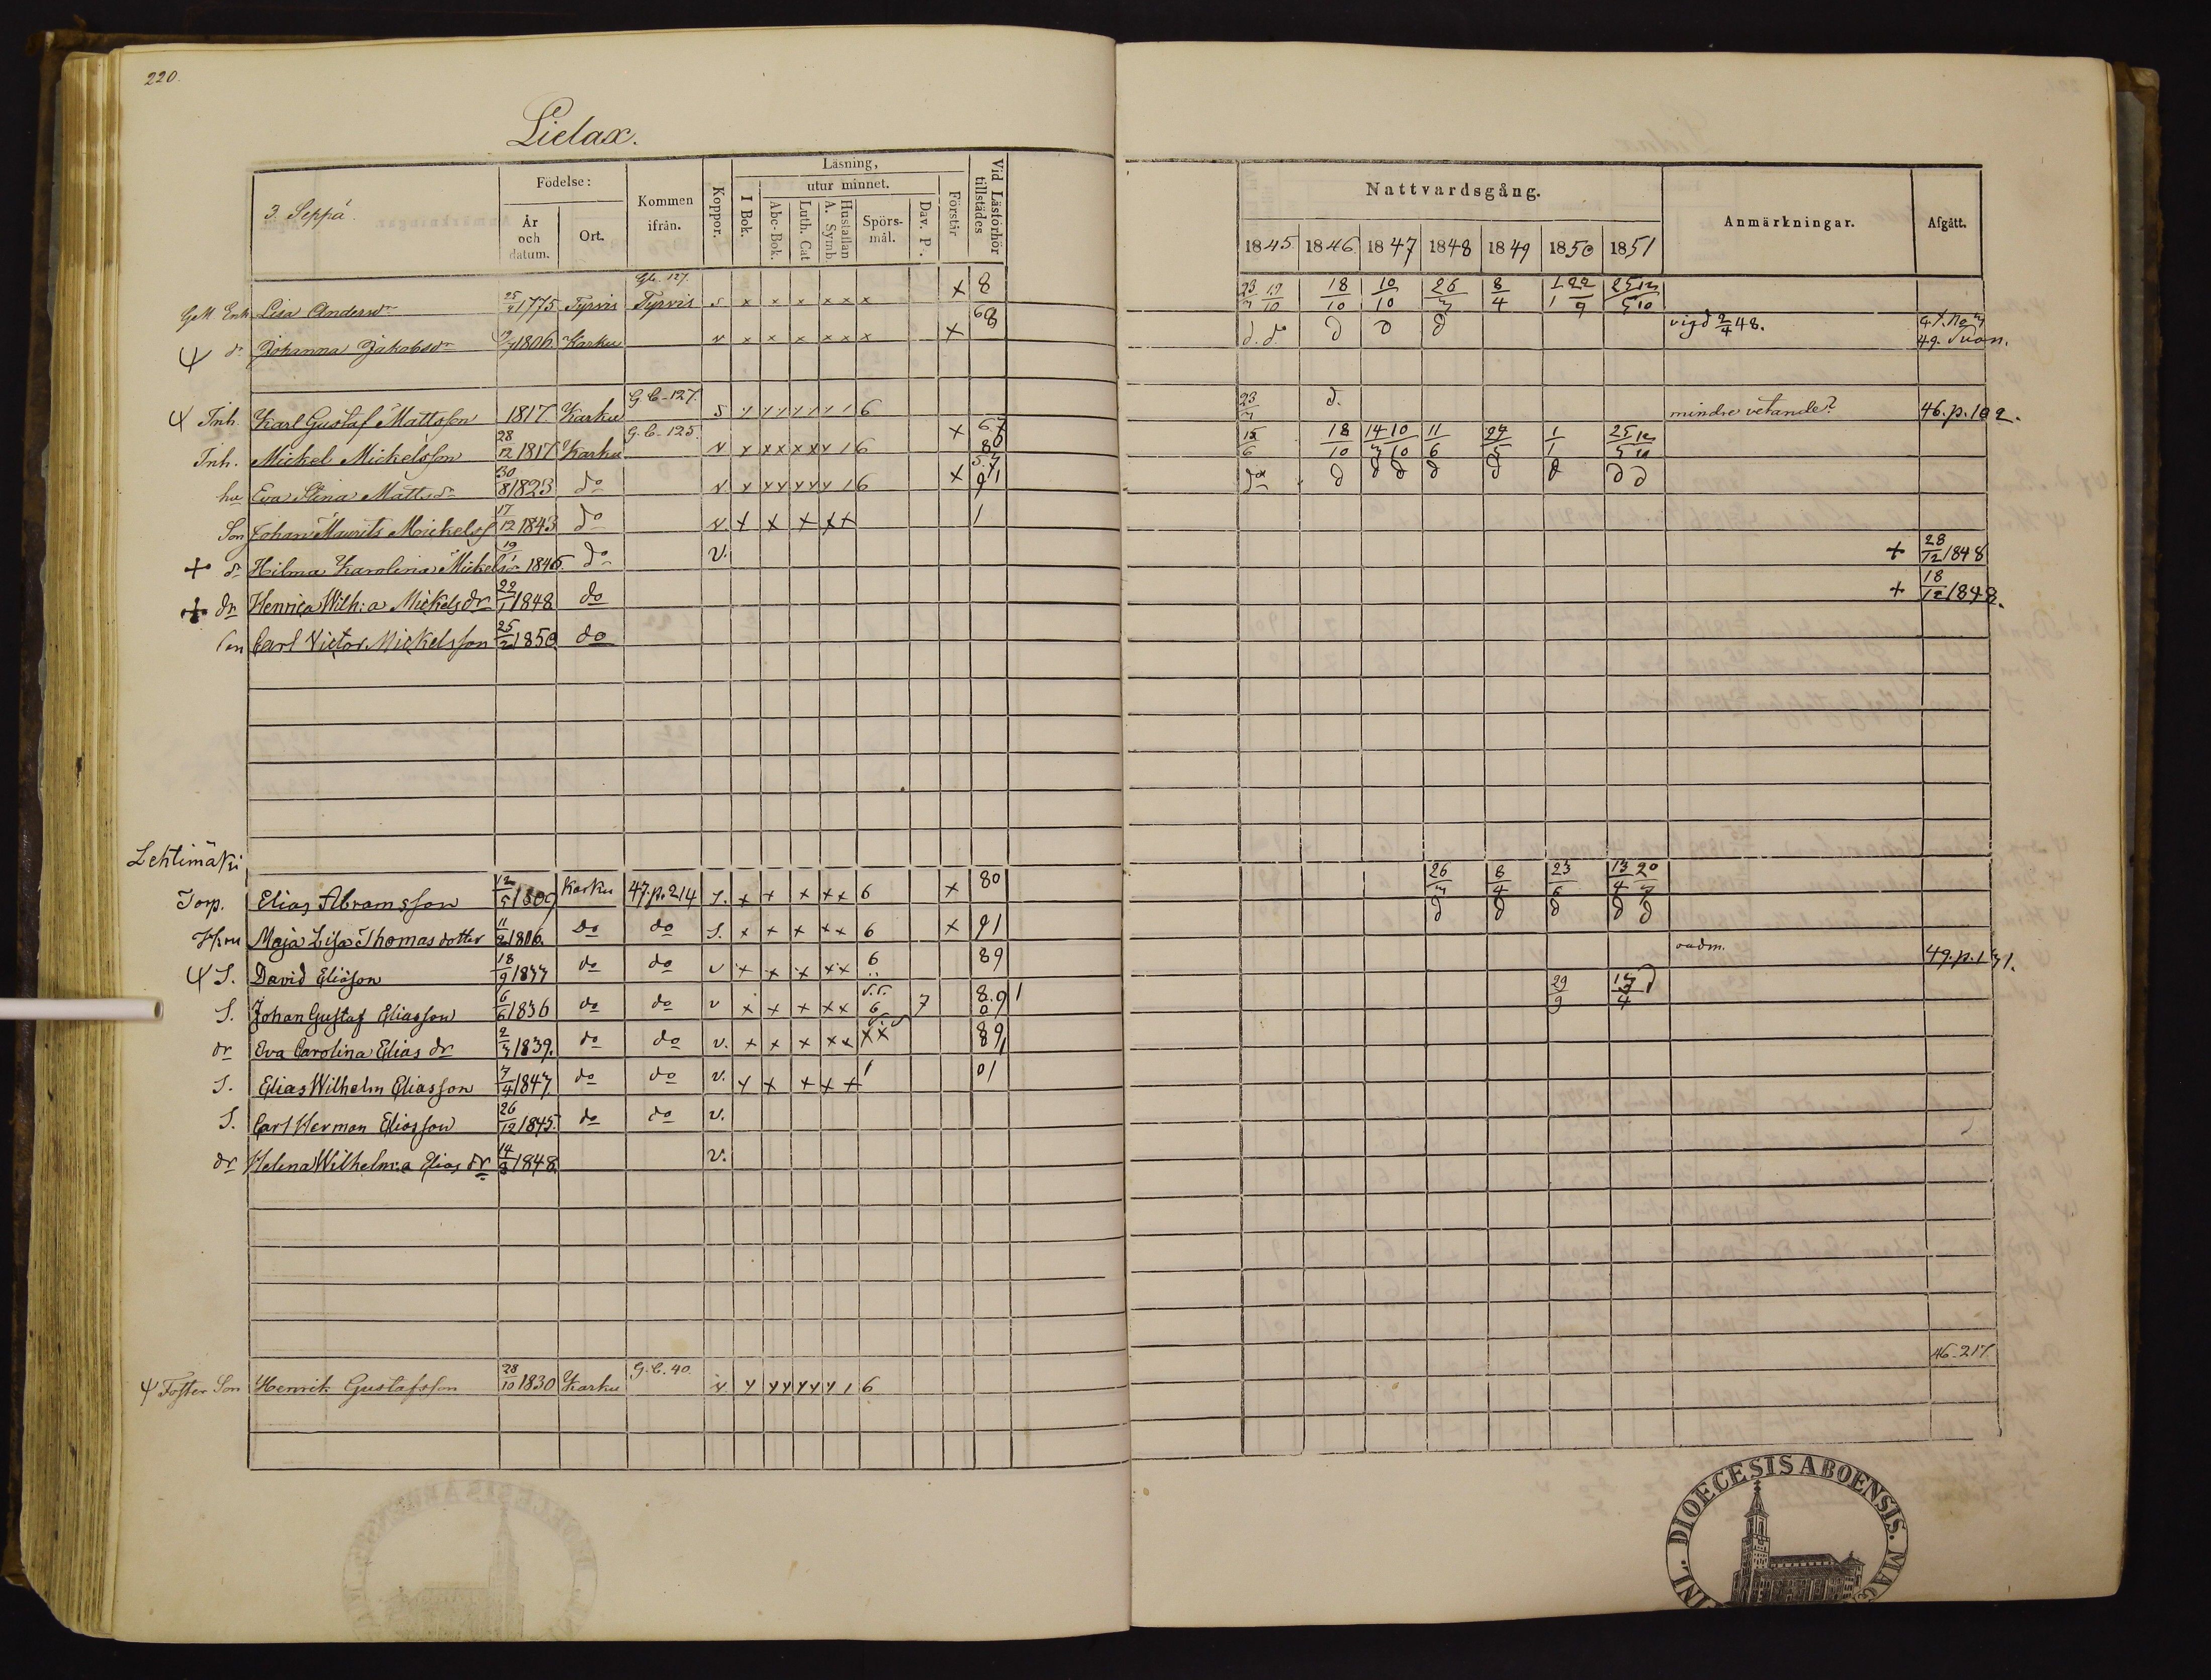 220.
Lielax.
3. Seppä.
Födelse:
År och datum.
Ort.
Kommen ifrån.
Koppor.
Läsning,
I Bok.
utur minnet.
Abc-Bok.
Luth. Cat
Hustaflan A. Symb.
Spörs-mål.
Dav. P.
Förstår
Vid Läsförhör tillstädes
Nattvardsgång.
1845 1846 1847 1848 1849 1850 1851
Anmärkningar.
Afgått.
Gb. 127.
Enk Lisa Andersdr 25/4 1775 Tyrvis Tyrvis s x x x x x x x 8 23/7 19/10 18/10 10/10 26/7 8/4
dr Johanna Jakobsdr 1806 Karku v x x x x x x x 68 d. do d d d vigd 2/4 48.
49.
G.C. 127.
Inh. Karl Gustaf Mattsson 1817. Karku s y y y y y y 1 6 23/7 d. mindre vetande? 46. p. 102.
G.C. 125.
Inh. Mickel Mickelsson 28/12 1817 Karku v y x x x x y 1 6 x 67 80 15/6 18/10 14/7 10/10 11/6 24/5 1/1
hu Eva Stina Mattsdr 30/8 1823 do v y y y y y y 1 6 x 5.7 91 do d d d d d d d d
Son Johan Maurits Mickelss 17/12 1843 do v. x x x x x 1
+ dr Hilma Karolina Mickelsdr 19/1 1846. do v. + 28/12 1848
+ dr Henrica Wilh:a Mickelsdr 22/1 1848 do + 18/12 1848.
son Carl Victor Mickelsson 25/2 1850 do
Lehtimäki
Torp. Elias Abramsson 12/5 1809 Karku 47. p. 214 s. x x x x x 6 x 80 26/7 8/4 23/6 13/4 20/7
Hru Maja Lisa Thomasdotter 11/2 1806. Do do s. x x x x x 6 x 91 d d d d d
S. David Eliasson 18/9 1833 do do v x x x x x 6 89 49. p. 171.
S. Johan Gustaf Eliasson 6/6 1836 do do v x x x x x 6 7 8.9 1 29/9 13/4 d
dr Eva Carolina Elias dr 2/7 1839. do do v. x x x x x x x 89
S. Elias Wilhelm Eliasson 7/4 1847. do do v. y x x x x 1 01
S. Carl Herman Eliasson 26/12 1845. do do v.
dr Helena Wilhelm:a Elias dr 14/8 1848. v.
G.C. 40.
Foster Son Henrik Gustafsson 28/10 1830 Karku v y y y y y y 1 6 46-217
DIOECESIS ABOENSIS.